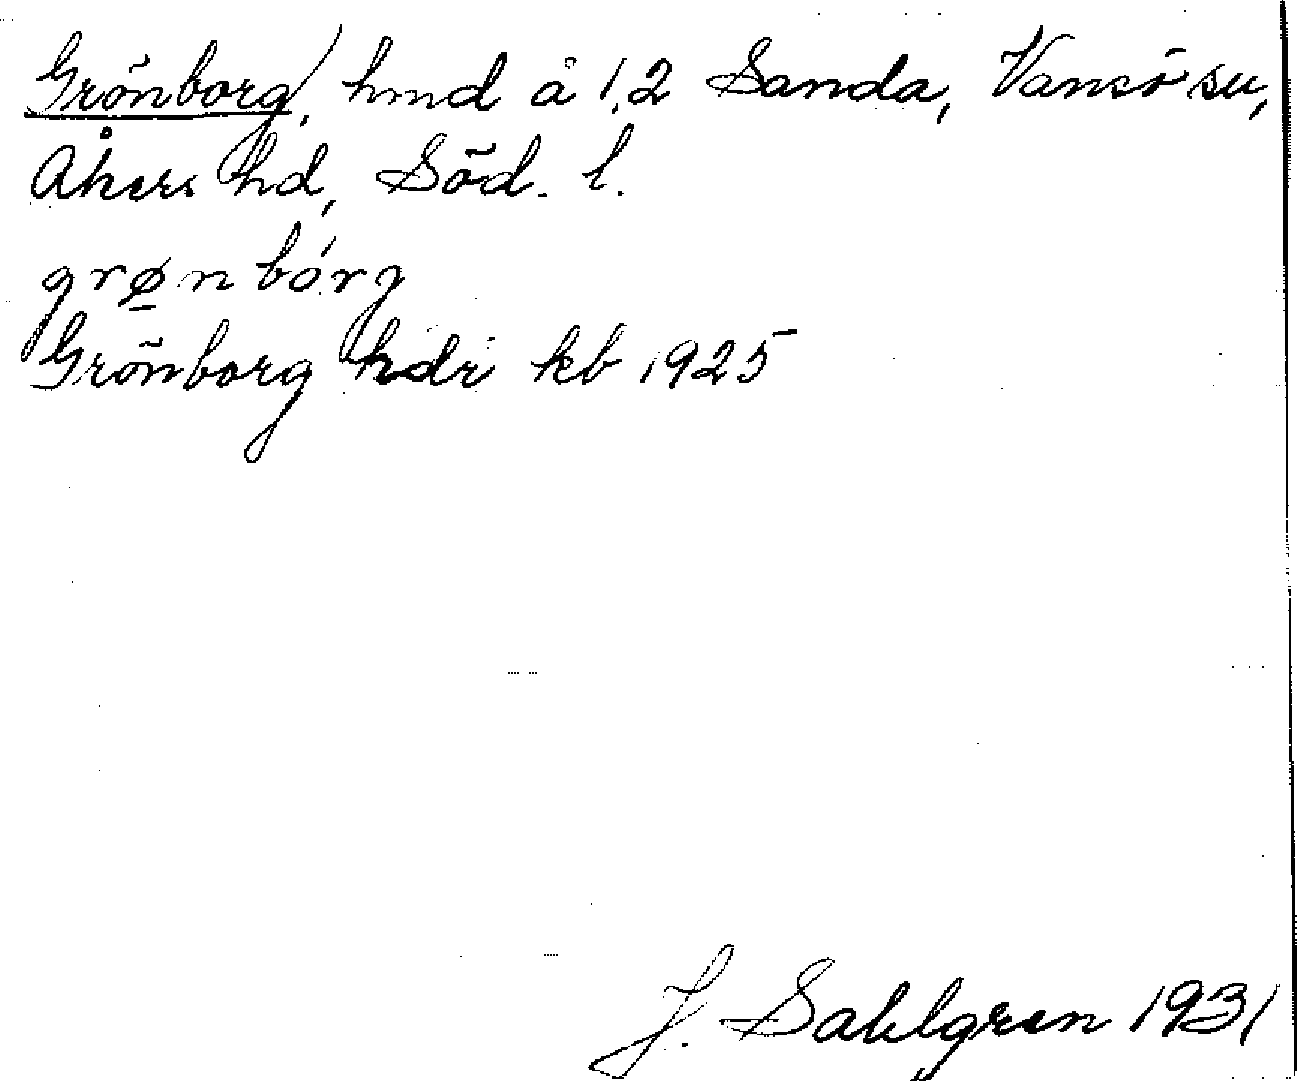 Grönborg, hmd å 1,2 Sanda, Vansö sn,
Åkers hd, Söd. l.
grønbórg
Grönborg hdr kb 1925
J. Sahlgren 1931